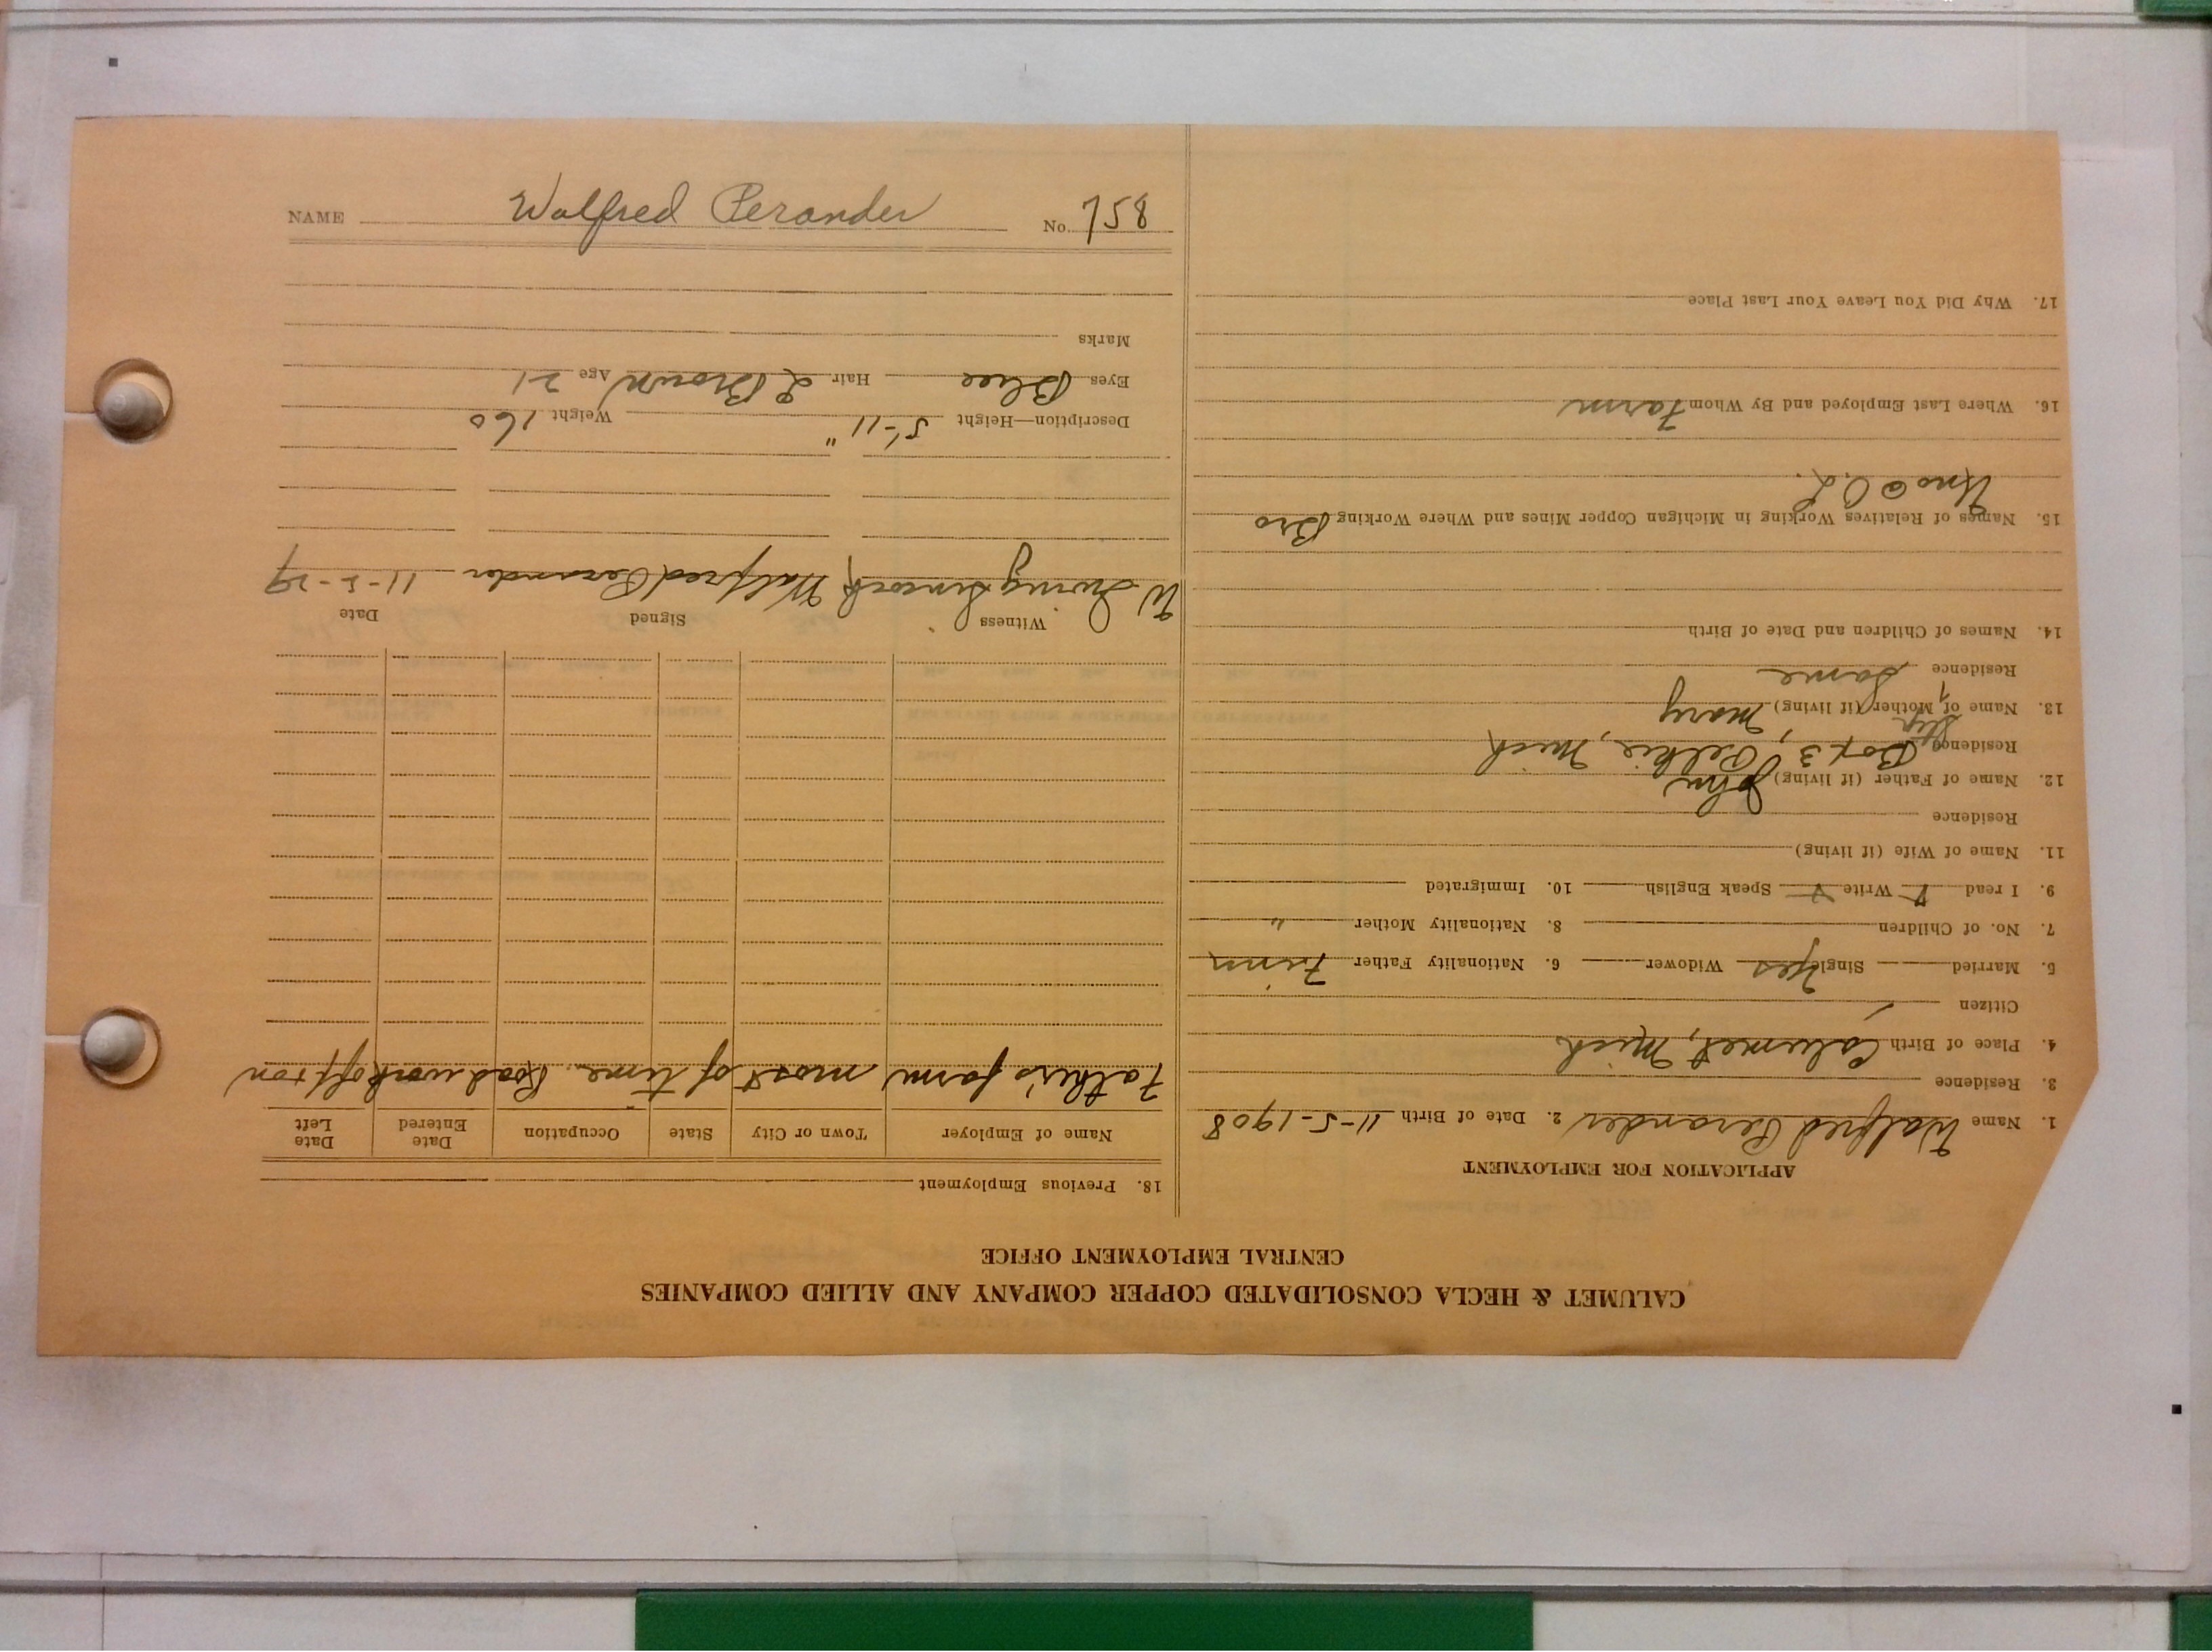 NAME Walfred Perander No. 758
CALUMET & HECLA CONSOLIDATED COPPER COMPANY AND ALLIED COMPANIES
CENTRAL EMPLOYMENT OFFICE
APPLICATION FOR EMPLOYMENT
1. Name Walfred Perander 2. Date of Birth 11-5-1908
3. Residence
4. Place of Birth Calumet, Mich
Citizen
5. Married Single Yes Widower 6. Nationality Father Finn
7. No. of Children 8. Nationality Mother "
9. I read ✓ Write ✓ Speak English 10. Immigrated
11. Name of Wife (if living)
Residence
12. Name of Father (if living) John
Residence Box 3, Pelkie, Mich
Step
13. Name of Mother (if living) Mary
Residence Same
14. Names of Children and Date of Birth
15. Names of Relatives Working in Michigan Copper Mines and Where Working Bro
Uno @ O.L.
16. Where Last Employed and By Whom Farm
17. Why Did You Leave Your Last Place
18. Previous Employment
Name of Employer Town or City State Occupation Date Entered Date Left
Father's farm most of time. Road work off & on
Witness Signed Date
W. Irving Simcock Walfred Perander 11-5-29
Description—Height 5'-11" Weight 160
Eyes Blue Hair L Brown Age 21
Marks